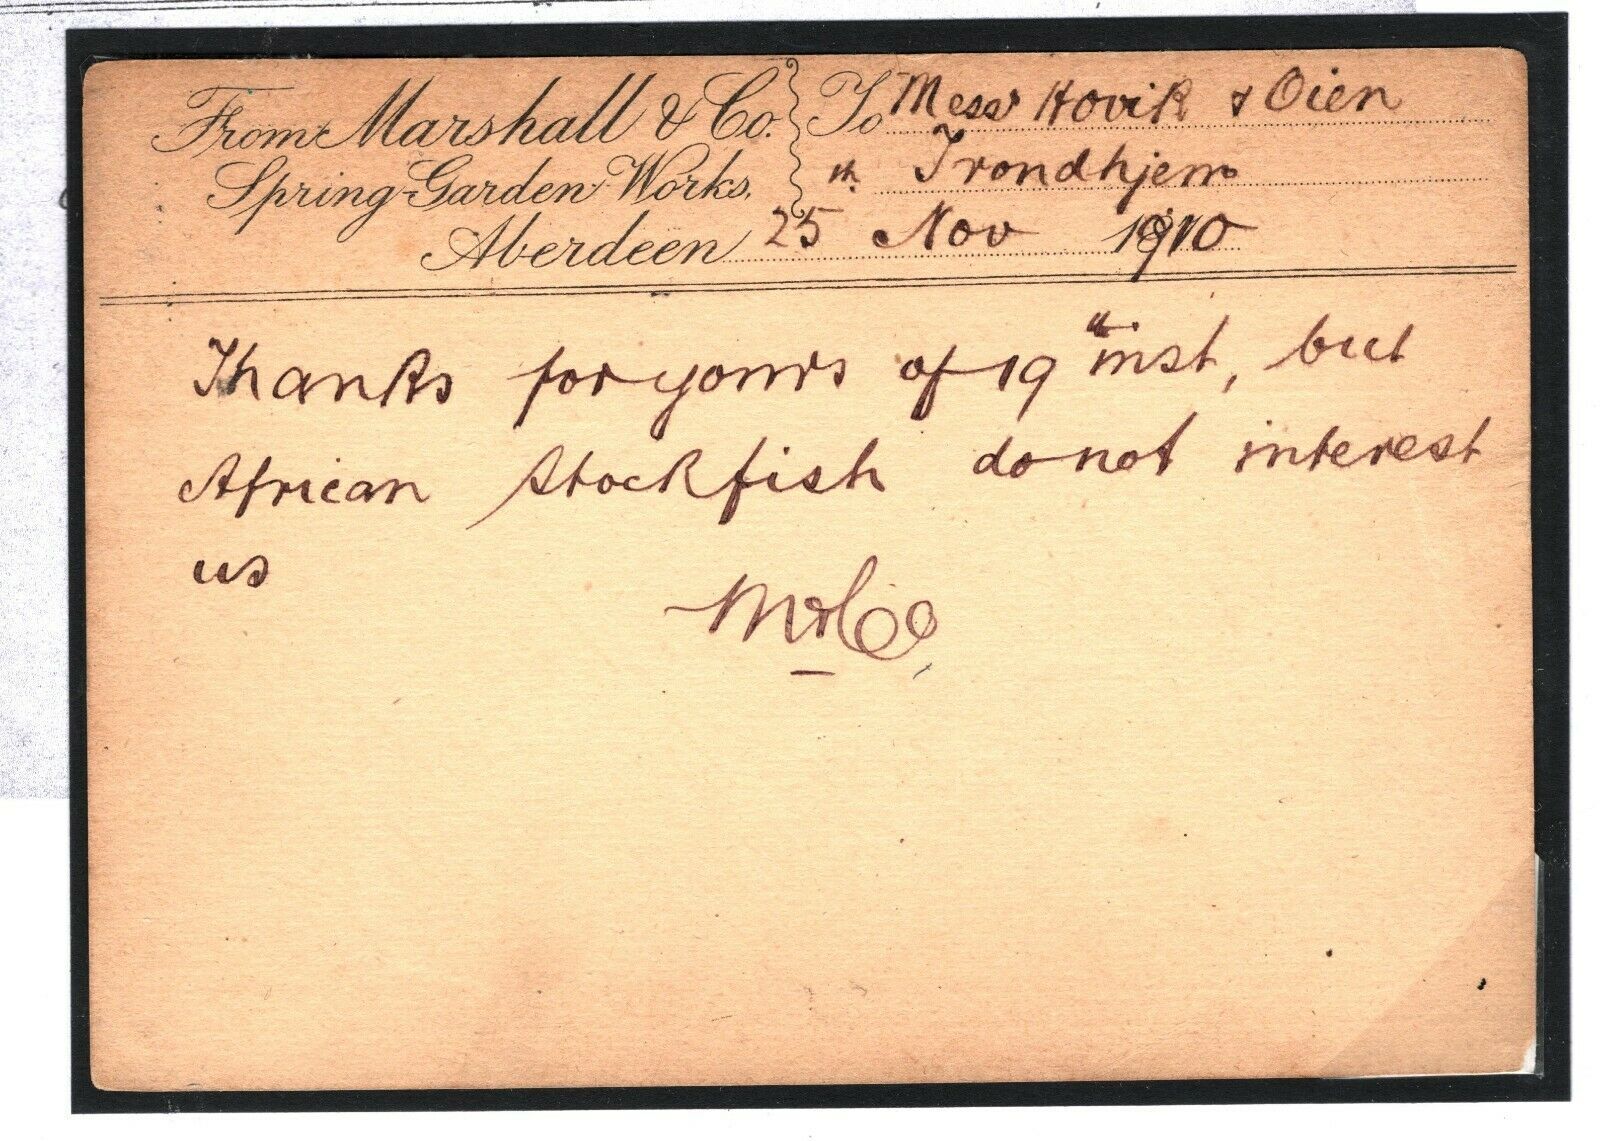 From Marshall & Co. To Mess^rs Hovik & Oien
Spring Garden Works, Trondhjem
Aberdeen 25th Nov 1910
Thanks for yours of 19th inst, but
African Stockfish do not interest
us
M & Co